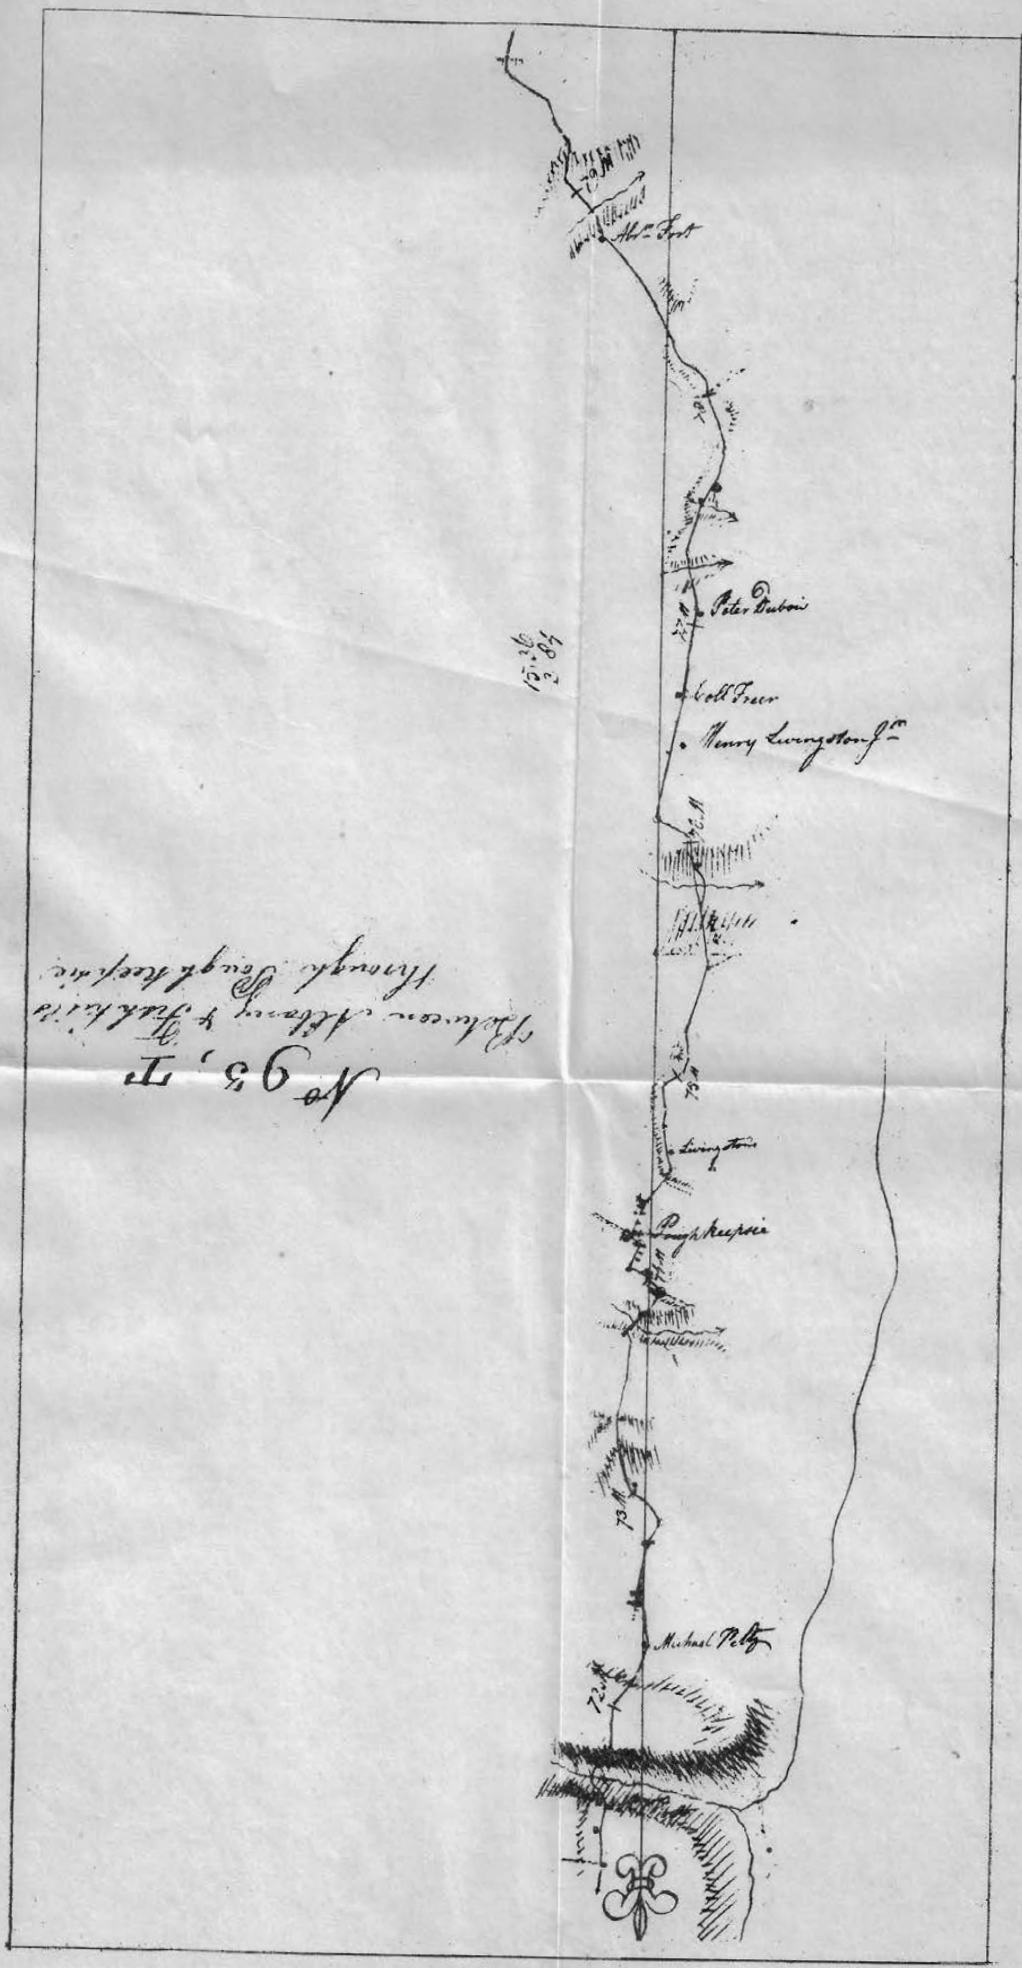 79 M
Abrm Fort
78
Peter Dubois
77 M
Coll Freer
Henry Livingston Jnr
76 M
75 M
Livingstons
Poughkeepsie
74 M
73 M
Michael Pells
72 M
No 93, T
Between Albany & Fishkills
through Poughkeepsie